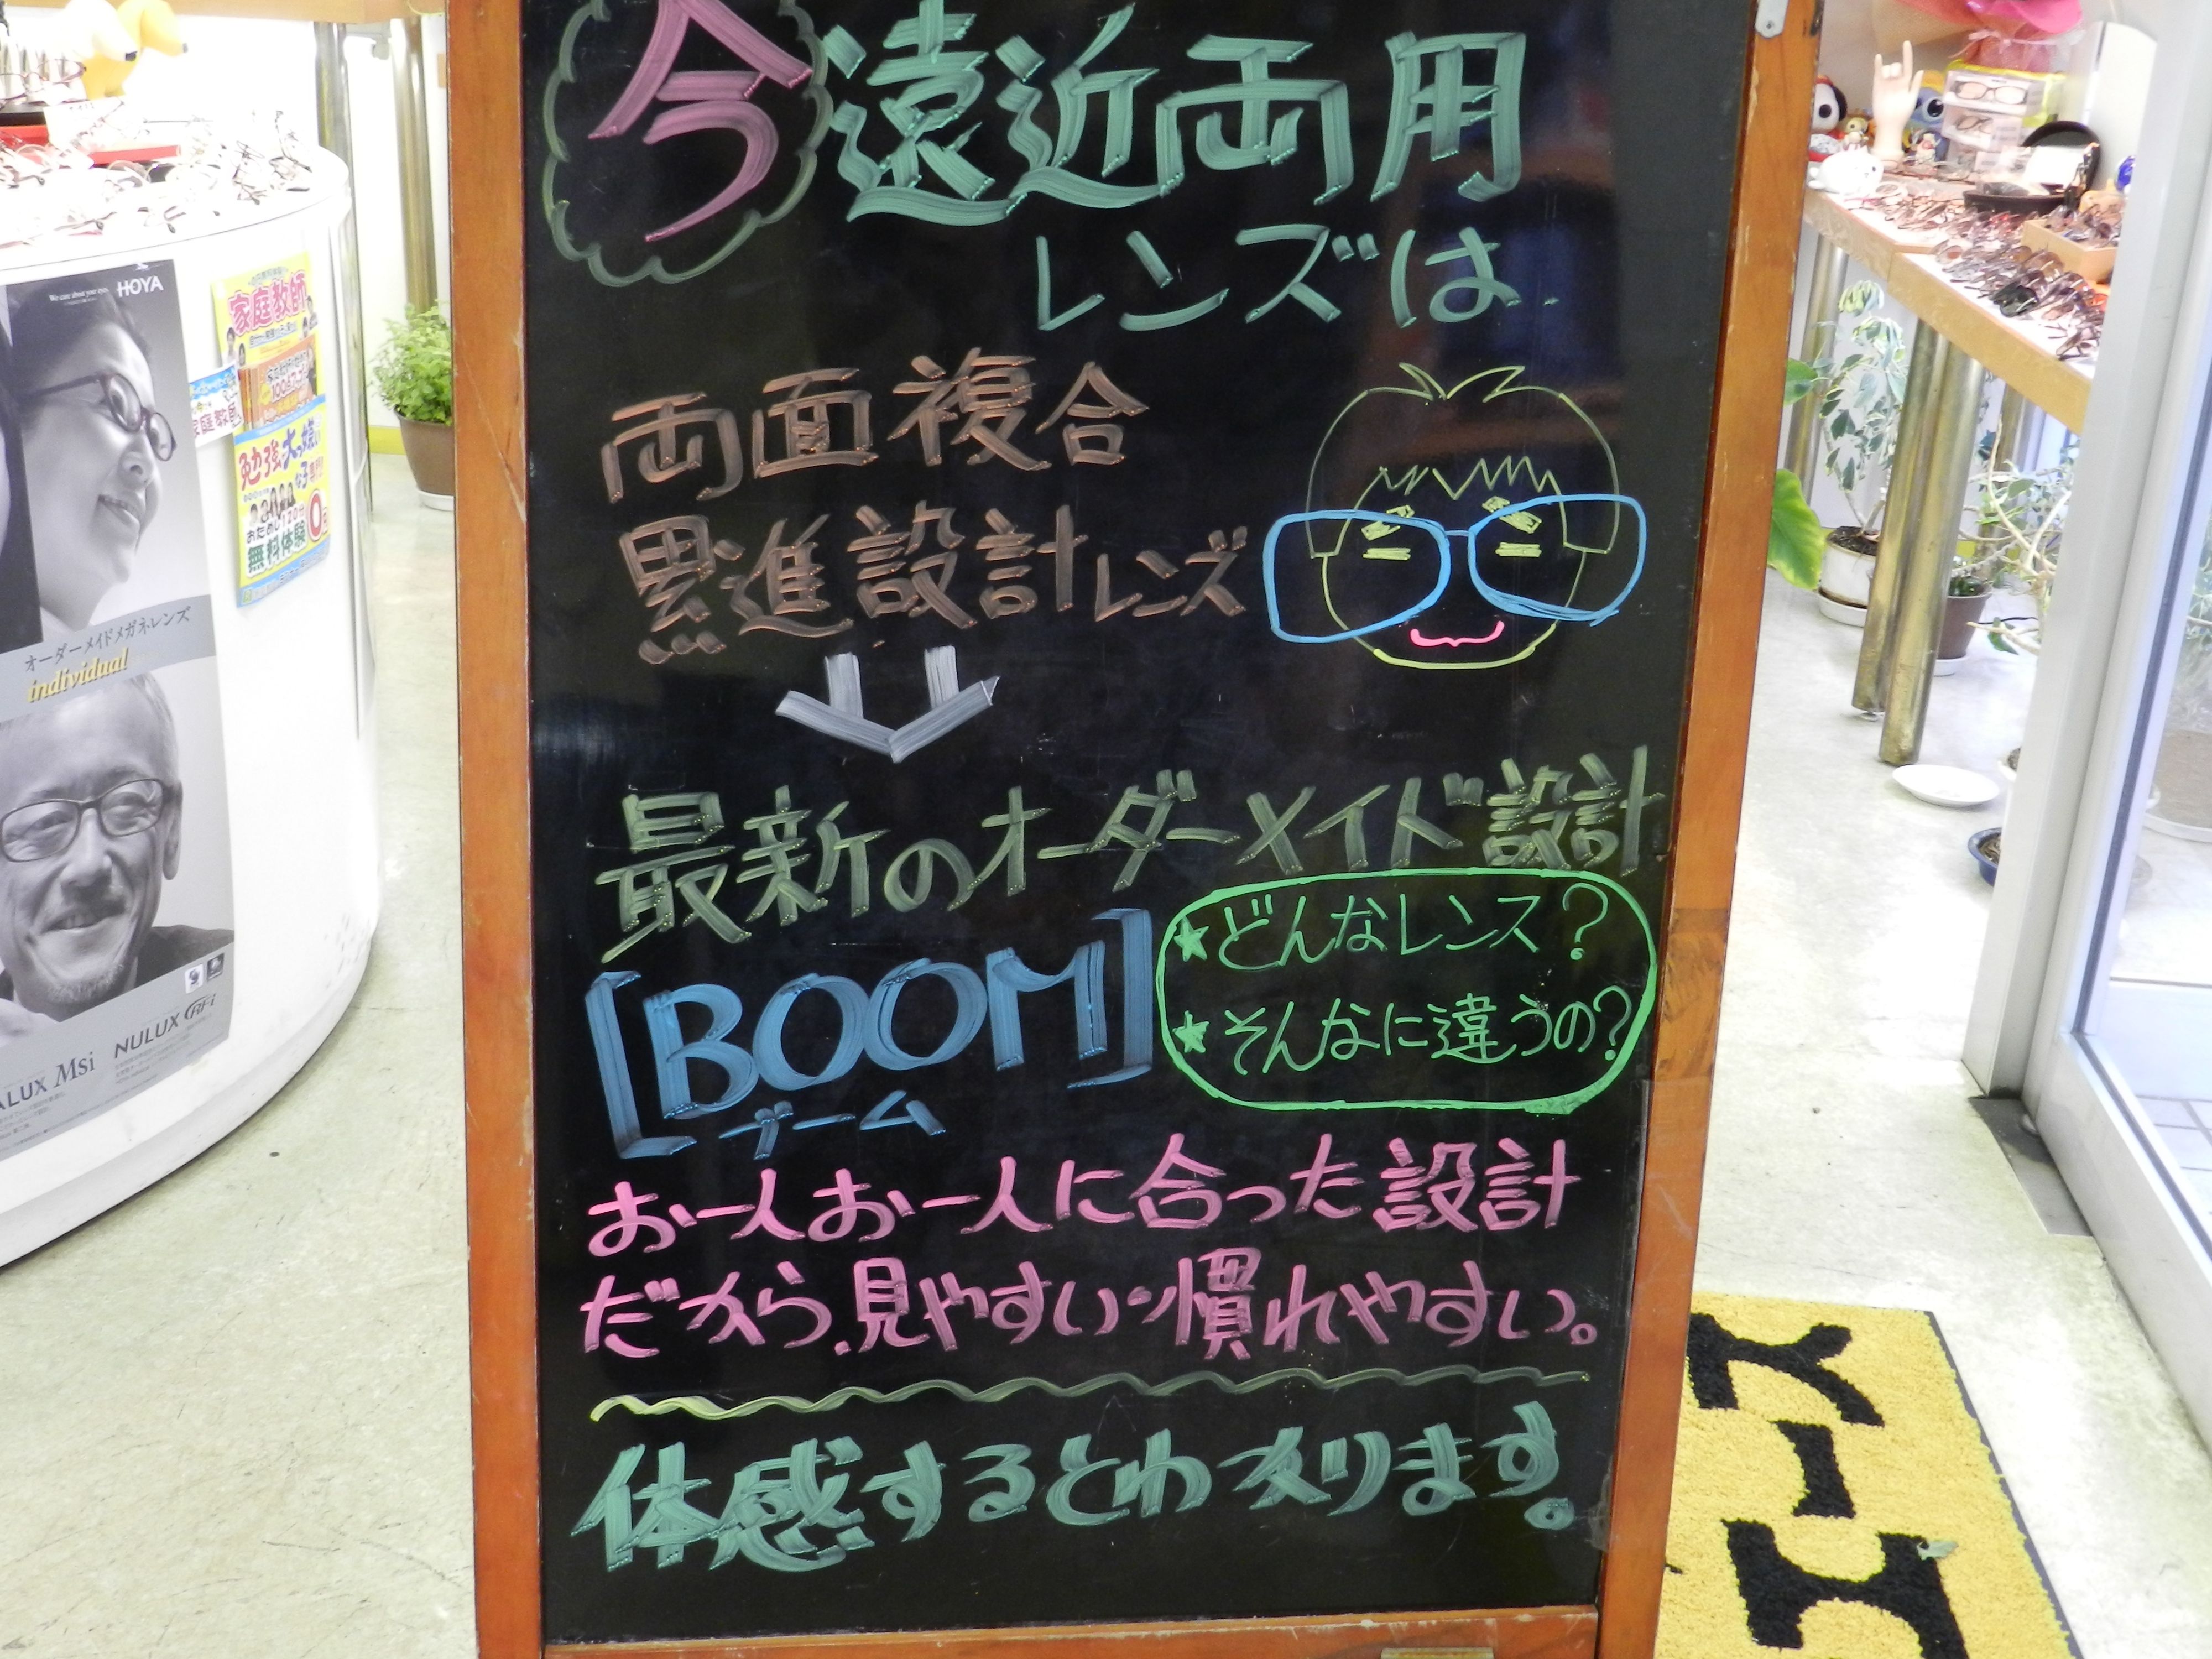 今遠近両用
レンズは
両面複合
累進設計レンズ
最新のオーダーメイド設計
[BOOM]
ブーム
★どんなレンズ?
★そんなに違うの?
お一人お一人に合った設計
だから、見やすい・慣れやすい。
体感するとわかります。
We care about your eyes.
HOYA
オーダーメイドメガネレンズ
individual
NULUX RFi
ALUX Msi
家庭教師
家庭教師
勉強大っ嫌い
な子専門!
おためし120分
無料体験